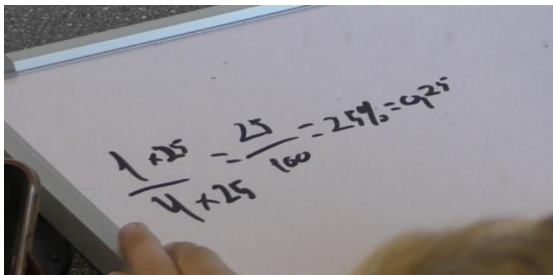 1×25/4×25 = 25/100 = 25% = 0,25